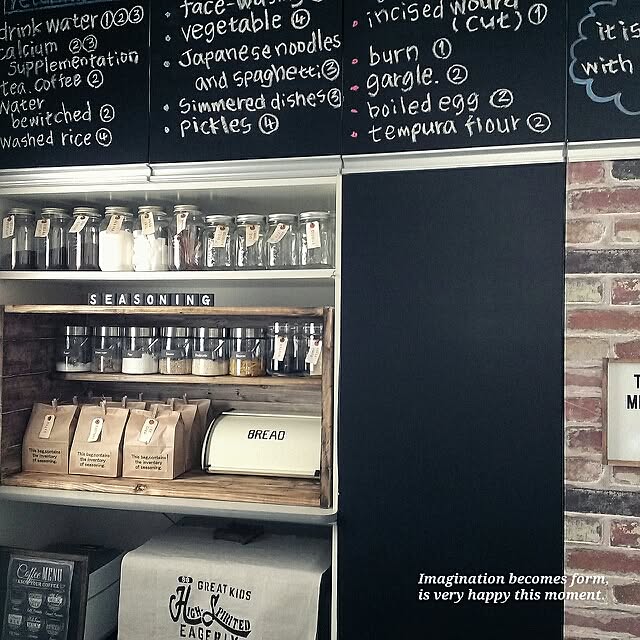 drink water ①②③
calcium ②③
supplementation
tea. coffee ②
water
bewitched ②
washed rice ④
face-washing
• vegetable ④
• Japanese noodles
and spaghetti ③
• simmered dishes ③
• pickles ④
• incised wound
(cut) ①
• burn ①
• gargle. ②
• boiled egg ②
• tempura flour ②
it is
with
SEASONING
BREAD
This bag contains
the inventory
of seasoning.
This bag contains
the inventory
of seasoning.
This bag contains
the inventory
of seasoning.
Coffee MENU
KNOW YOUR COFFEE
GREAT KIDS
High Spirited
EAGERLY
Imagination becomes form,
is very happy this moment.